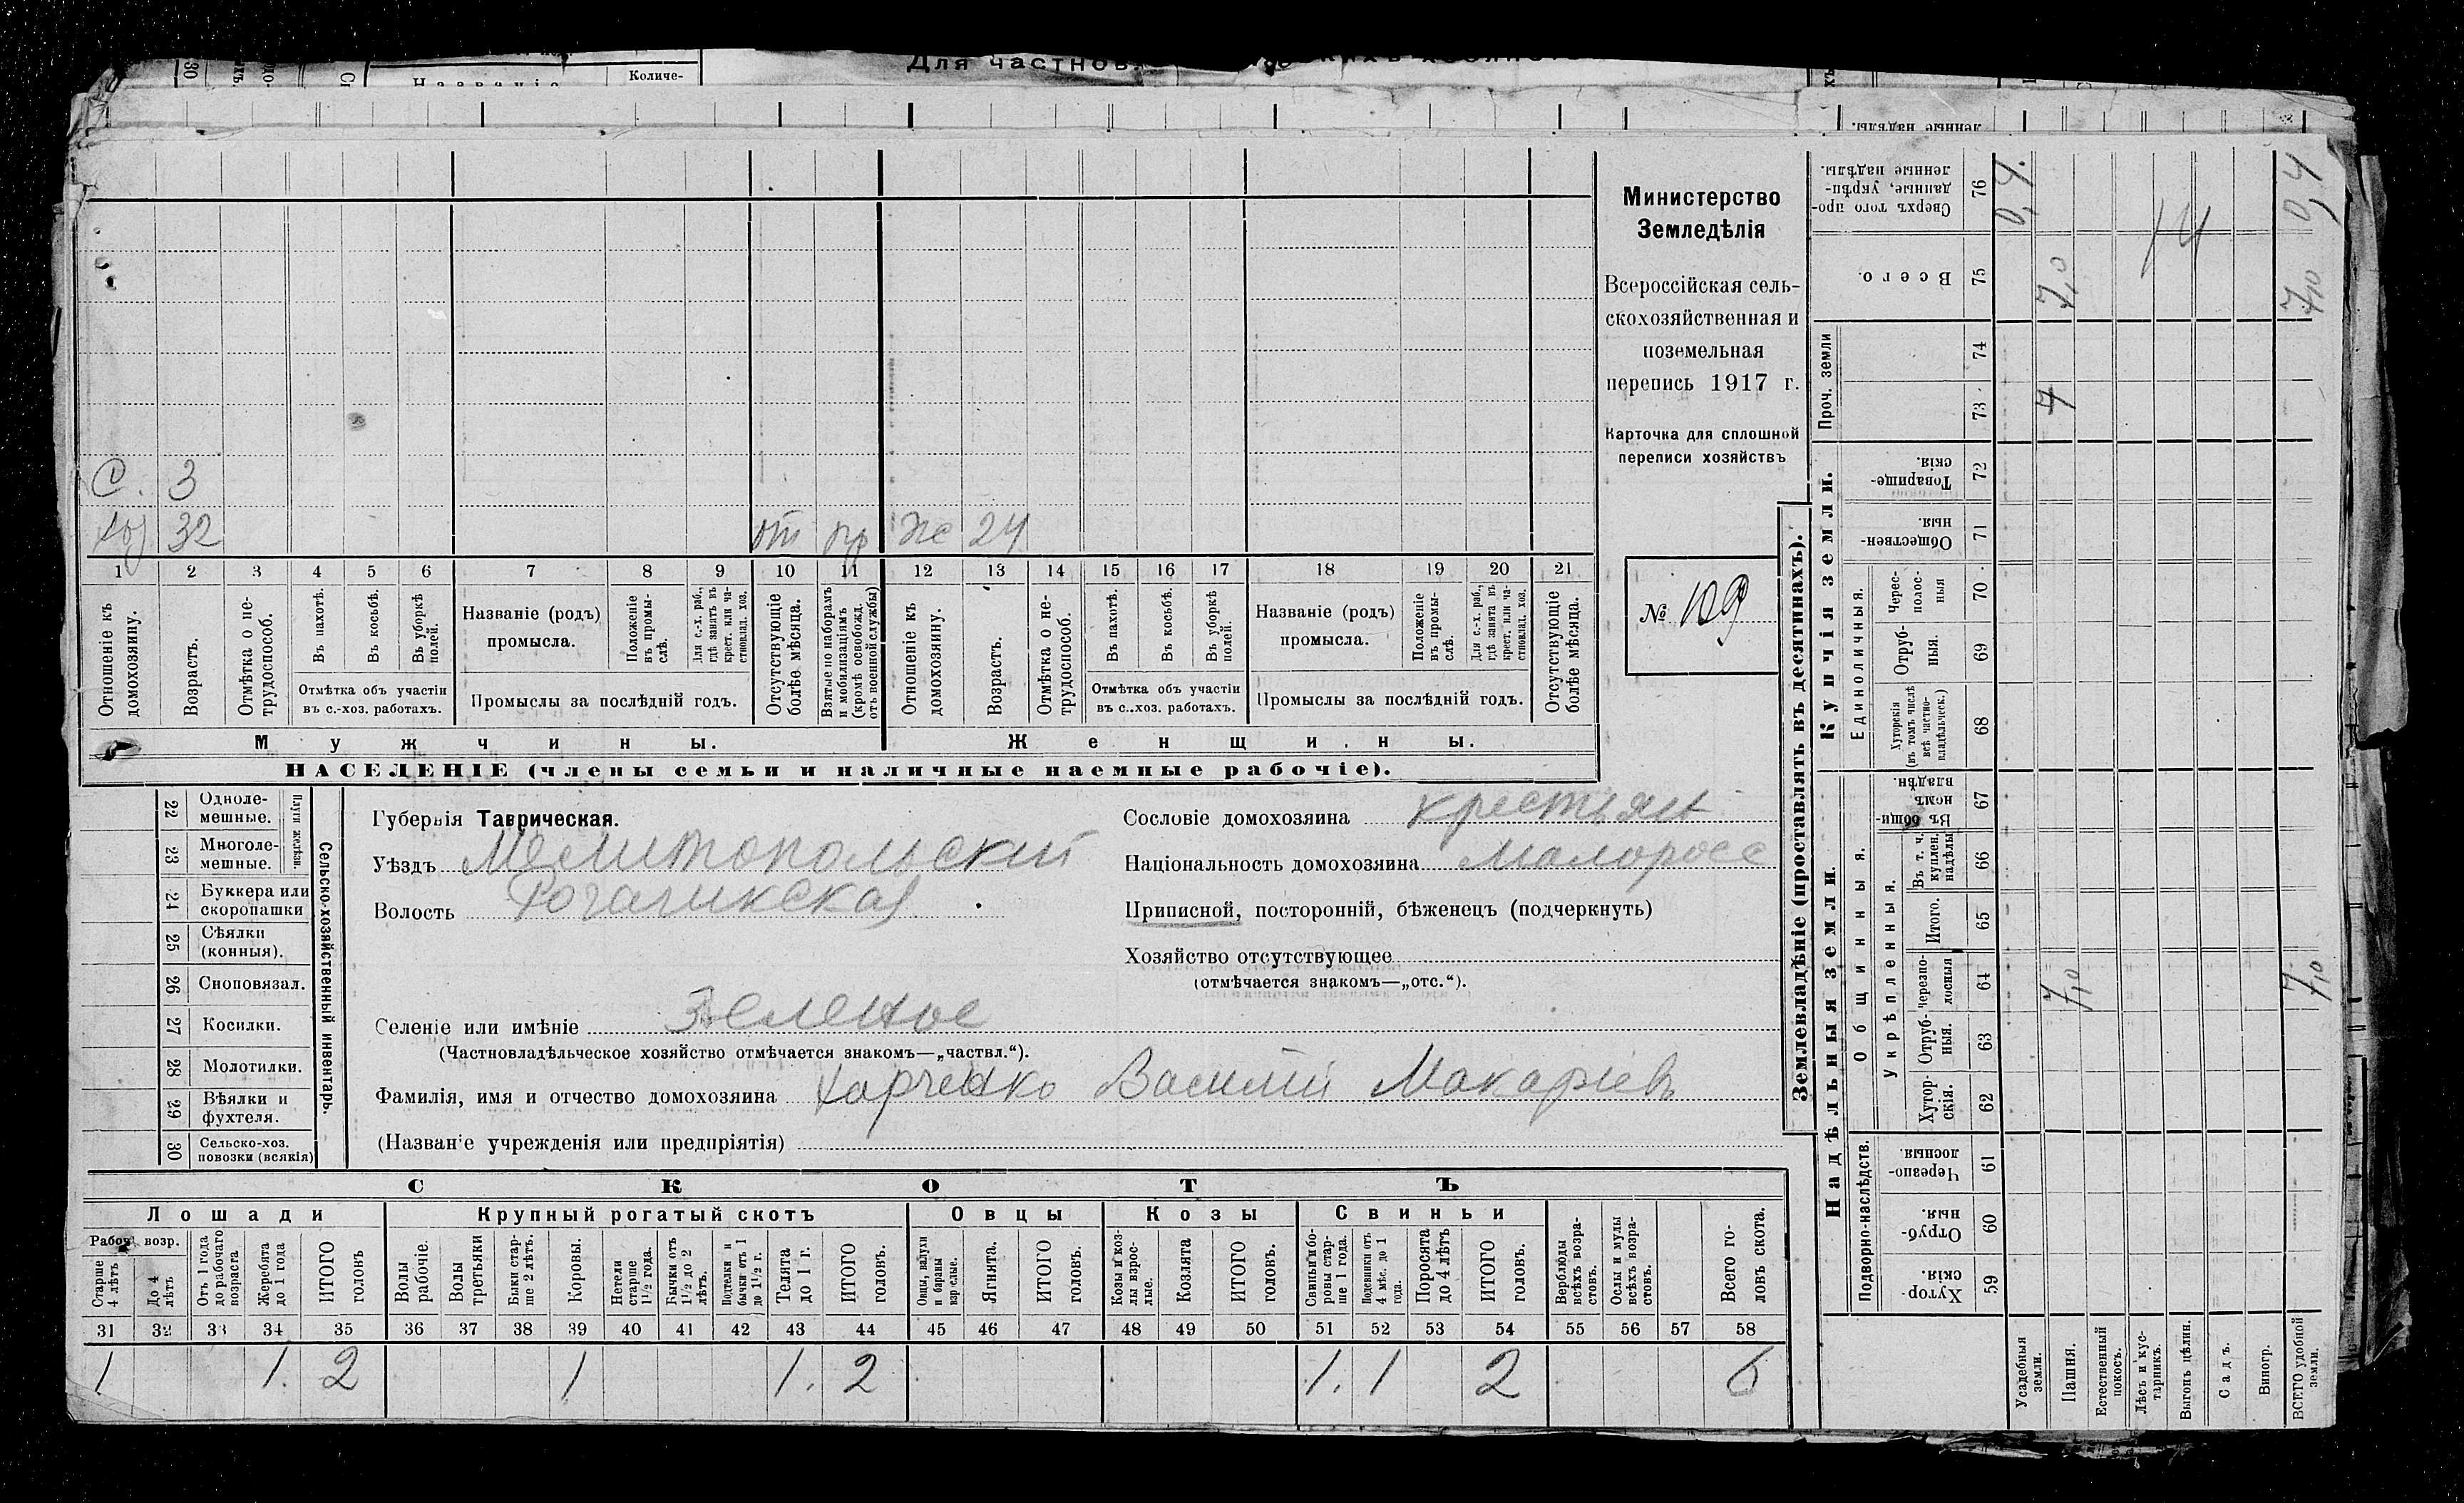 Количе-
Для частнов
Министерство
Земледѣлія
Всероссійская сель-
скохозяйственная и
поземельная
перепись 1917 г.
Карточка для сплошной
переписи хозяйствъ
№ 109
С. 3
хоз 32 от пр же 24
1 2 3 4 5 6 7 8 9 10 11 12 13 14 15 16 17 18 19 20 21
Отношеніе къ домохозяину.
Возрастъ.
Отмѣтка о не-трудоспособ.
Въ пахотѣ.
Въ косьбѣ.
Въ уборкѣ полей.
Отмѣтка объ участіи
въ с.-хоз. работахъ.
Названіе (родъ)
промысла.
Положеніе въ промы-слѣ.
Для с.-х. раб., гдѣ занятъ въ крест. или ча-стновлад. хоз.
Промыслы за послѣдній годъ.
Отсутствующіе болѣе мѣсяца.
Взятые по наборамъ и мобилизаціямъ (кромѣ освобожд. отъ военной службы)
Отношеніе къ домохозяину.
Возрастъ.
Отмѣтка о не-трудоспособ.
Въ пахотѣ.
Въ косьбѣ.
Въ уборкѣ полей.
Отмѣтка объ участіи
въ с.-хоз. работахъ.
Названіе (родъ)
промысла.
Положеніе въ промы-слѣ.
Для с.-х. раб., гдѣ занятъ въ крест. или ча-стновлад. хоз.
Промыслы за послѣдній годъ.
Отсутствующіе болѣе мѣсяца.
Мужчины. Женщины.
НАСЕЛЕНІЕ (члены семьи и наличные наемные рабочіе).
Сельско-хозяйственный инвентарь.
Плуги желѣзн.
22 Одноле-мешные.
23 Многоле-мешные.
24 Буккера или скоропашки
25 Сѣялки (конныя).
26 Сноповязал.
27 Косилки.
28 Молотилки.
29 Вѣялки и фухтеля.
30 Сельско-хоз. повозки (всякія)
Губернія Таврическая.
Уѣздъ Мелитопольский
Волость Рогачикская
Селеніе или имѣніе Зеленое
(Частновладѣльческое хозяйство отмѣчается знакомъ—„частвл.“).
Фамилія, имя и отчество домохозяина Харченко Василий Макаріевъ
(Названіе учрежденія или предпріятія)
Сословіе домохозяина крестьян
Національность домохозяина Малоросс
Приписной, посторонній, бѣженецъ (подчеркнуть)
Хозяйство отсутствующее
(отмѣчается знакомъ—„отс.“).
СКОТЪ
Лошади Крупный рогатый скотъ Овцы Козы Свиньи
Рабоч. возр.
Старше 4 лѣтъ
До 4 лѣтъ
Отъ 1 года до рабочаго возраста
Жеребята до 1 года
ИТОГО головъ
Волы рабочіе.
Волы третьячки
Быки стар-ше 2 лѣтъ.
Коровы.
Нетели старше 1½ года.
Бычки отъ 1½ до 2 лѣтъ.
Подтелки и бычки отъ 1 до 1½ г.
Телята до 1 г.
ИТОГО головъ.
Овцы, валухи и бараны взрослые.
Ягнята.
ИТОГО головъ.
Козы и коз-лы взрос-лые.
Козлята
ИТОГО головъ.
Свиньи и бо-ровы стар-ше 1 года.
Подсвинки отъ 4 мѣс. до 1 года.
Поросята до 4 лѣтъ
ИТОГО головъ.
Верблюды всѣхъ возра-стовъ.
Ослы и мулы всѣхъ возра-стовъ.
Всего го-ловъ скота.
31 32 33 34 35 36 37 38 39 40 41 42 43 44 45 46 47 48 49 50 51 52 53 54 55 56 57 58
1 1. 2 1 1. 2 1. 1 2 6
Землевладѣніе (проставлять въ десятинахъ).
Купчія земли.
Проч. земли
Единоличныя.
Надѣльныя земли.
Общинныя.
Укрѣпленныя.
Подворно-наслѣдств.
Сверхъ того про-данные, укрѣп-ленные надѣлы. 76 0,4. 0,4
Всего. 75 7,0 14 7,0
74
73 7
Товарище-скія. 72
Обществен-ныя. 71
Черес-полос-ныя 70
Отруб-ныя. 69
Хуторскія (въ томъ числѣ всѣ частно-владѣльческ.) 68
Въ общин-номъ владѣн. 67
Въ т. ч. куплен. надѣлы 66
Итого. 65
Черезпо-лосныя 64 7,0 7,0
Отруб-ныя. 63
Хутор-скія. 62
Черезпо-лосныя. 61
Отруб-ныя. 60
Хутор-скія. 59
Усадебныя земли.
Пашня.
Естественный покосъ.
Лѣсъ и кус-тарникъ.
Выгонъ цѣлин.
Садъ.
Виногр.
ВСЕГО удобной земли.